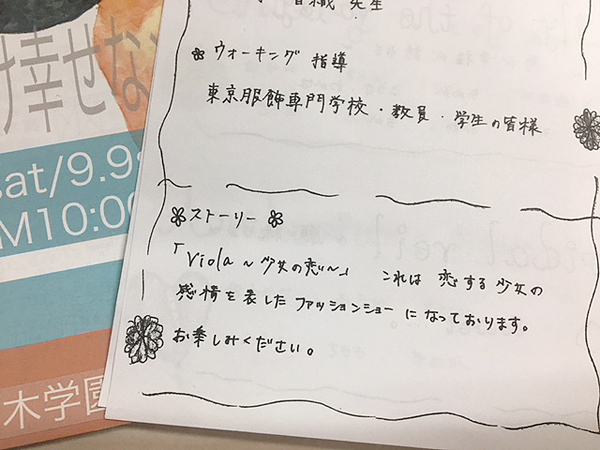 先生
❀ ウォーキング 指導
東京服飾専門学校・教員・学生の皆様
❀ストーリー ❀
「Viola ～少女の恋～」 これは 恋する少女の
感情を表したファッションショーになっております。
お楽しみください。
け幸せな
sat/9.9
M10:00
木学園